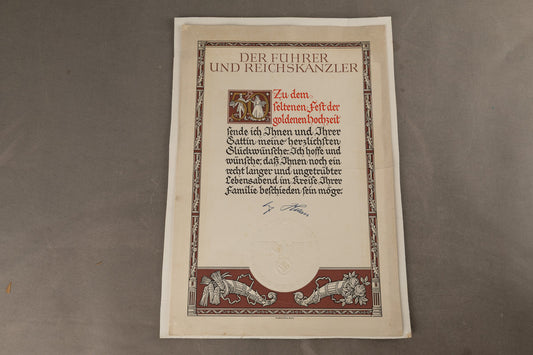 DER FÜHRER
UND REICHSKANZLER
Zu dem
seltenen Fest der
goldenen Hochzeit
sende ich Ihnen und Ihrer
Gattin meine herzlichsten
Glückwünsche. Ich hoffe und
wünsche, daß Ihnen noch ein
recht langer und ungetrübter
Lebensabend im Kreise Ihrer
Familie beschieden sein möge.